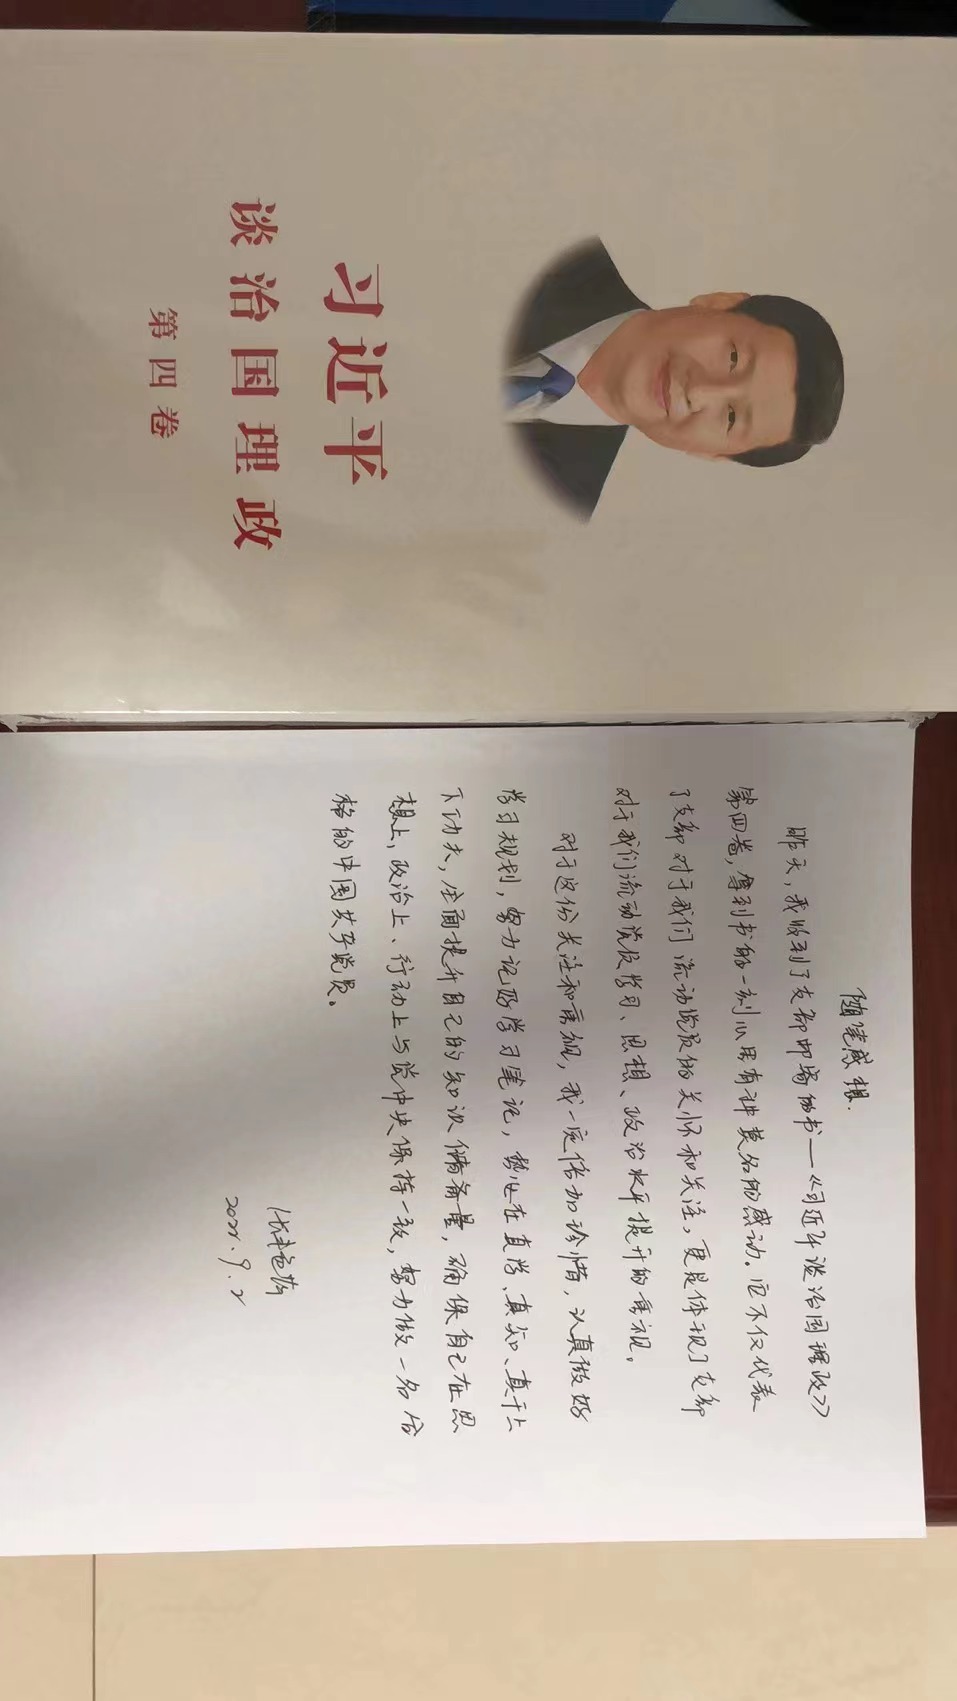 习近平
谈治国理政
第四卷
随笔感想.
昨天,我收到了支部邮寄的书—《习近平谈治国理政》
第四卷,拿到书的一刻心里有种莫名的感动。它不仅代表
了支部对于我们流动党员的关怀和关注,更是体现了支部
对于我们流动党员学习、思想、政治水平提升的重视。
对于这份关注和重视,我一定倍加珍惜,认真做好
学习规划,努力记好学习笔记,势必在真学、真知、真干上
下功夫,全面提升自己的知识储备量,确保自己在思
想上,政治上、行动上与党中央保持一致,努力做一名合
格的中国共产党员。
2022.9.2